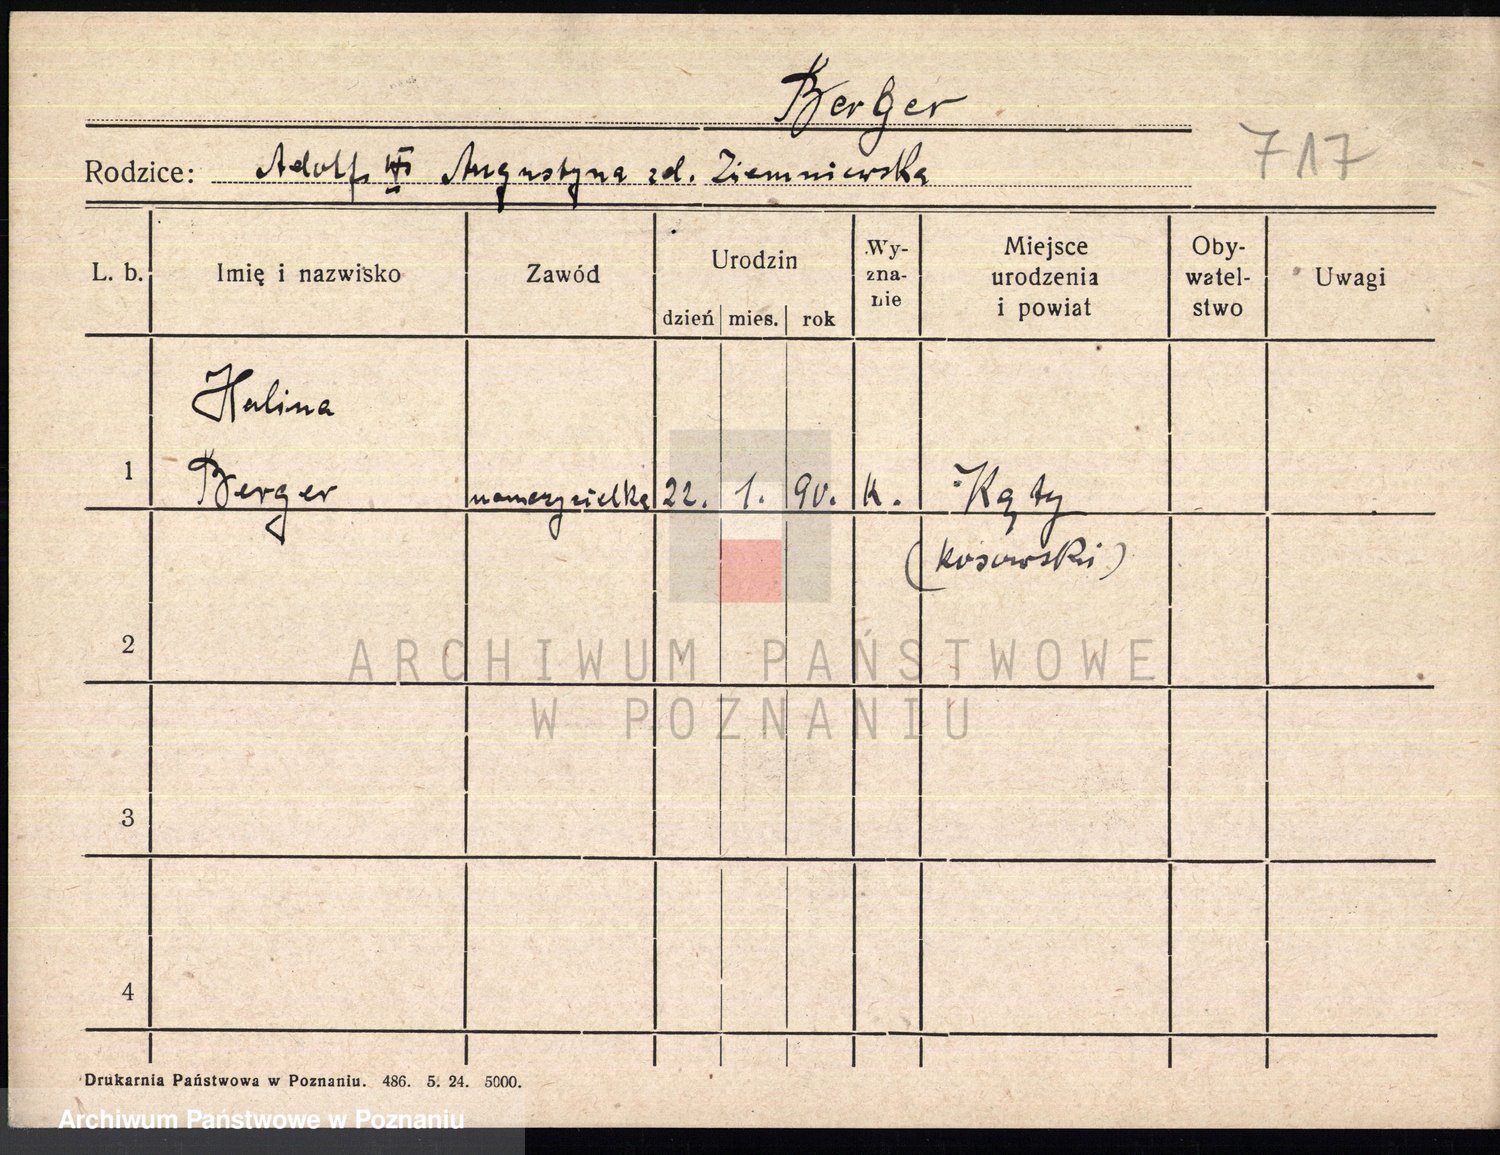 Berger
717
Rodzice: Adolf i Augustyna zd. Ziemniewska
L. b. Imię i nazwisko Zawód Urodzin dzień mies. rok Wy-zna-nie Miejsce urodzenia i powiat Oby-watel-stwo Uwagi
Halina
1 Berger nauczycielka 22. 1. 90. k. Kąty
(kosowski)
2
ARCHIWUM PAŃSTWOWE
W POZNANIU
3
4
Drukarnia Państwowa w Poznaniu. 486. 5. 24. 5000.
Archiwum Państwowe w Poznaniu